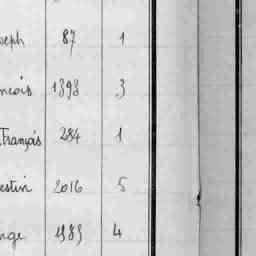 seph 87 1
ncois 1898 3
Français 284 1
estin 2016 5
nge 1983 4